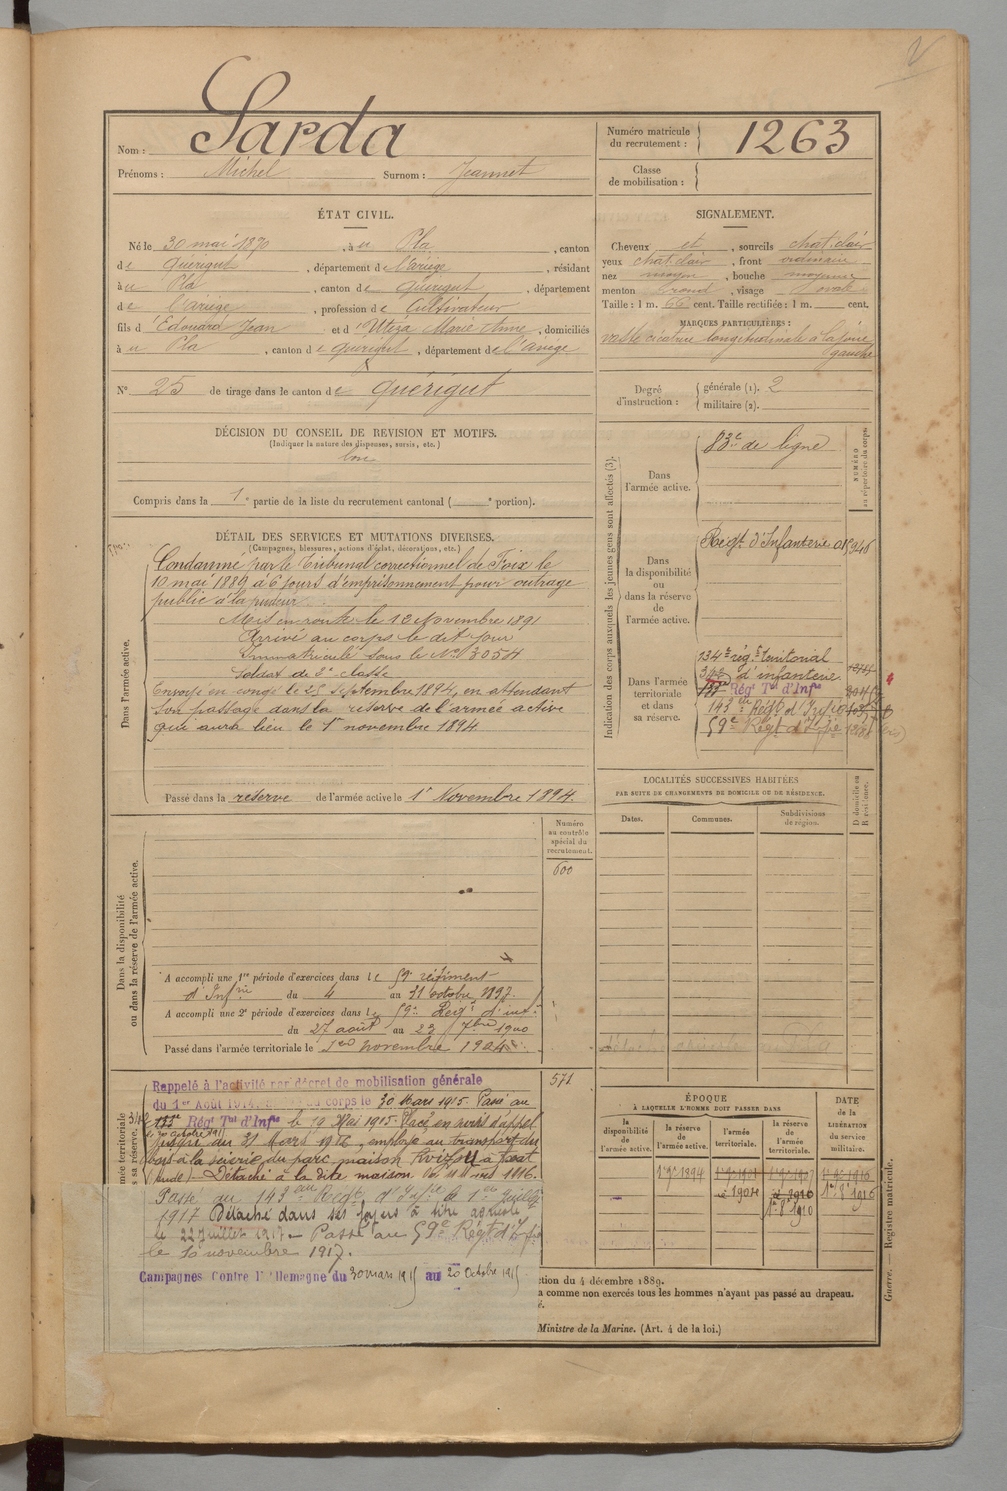 Nom : Sarda
Prénoms : Michel Surnom : Jeannet
Numéro matricule du recrutement : 1263
Classe de mobilisation :
ÉTAT CIVIL.
Né le 30 mai 1870, à u Pla, canton
de Quérigut, département de l'ariège, résidant
à u Pla, canton de Quérigut, département
de l'ariège, profession de Cultivateur
fils d'Edouard Jean et d'Utéza Marie Anne, domiciliés
à u Pla, canton de Quérigut, département de l'ariège
N° 25 de tirage dans le canton de Quérigut
SIGNALEMENT.
Cheveux et, sourcils chat. clair
yeux chat. clair, front ordinaire
nez moyen, bouche moyenne
menton rond, visage ovale
Taille : 1 m. 66 cent. Taille rectifiée : 1 m. cent.
MARQUES PARTICULIÈRES :
vaste cicatrice longitudinale à la joue
gauche
Degré d'instruction : générale (1). 2
militaire (2).
DÉCISION DU CONSEIL DE REVISION ET MOTIFS.
(Indiquer la nature des dispenses, sursis, etc.)
bon
Compris dans la 1e partie de la liste du recrutement cantonal ( e portion).
DÉTAIL DES SERVICES ET MUTATIONS DIVERSES.
(Campagnes, blessures, actions d'éclat, décorations, etc.)
Dans l'armée active.
Condamné par le Tribunal correctionnel de Foix le
10 mai 1889 à 6 jours d'emprisonnement pour outrage
public à la pudeur.
Mis en route le 12 Novembre 1891
Arrivé au corps le dit jour
Immatriculé sous le No 3054
Soldat de 2e classe
Envoyé en congé le 25 Septembre 1894, en attendant
son passage dans la réserve de l'armée active
qui aura lieu le 1er novembre 1894
Passé dans la réserve de l'armée active le 1er Novembre 1894.
Indication des corps auxquels les jeunes gens sont affectés (3).
NUMÉRO au répertoire du corps.
Dans l'armée active.
83e de ligne
Dans la disponibilité ou dans la réserve de l'armée active.
Régt d'Infanterie
Dans l'armée territoriale et dans sa réserve.
134e rég.t territorial
d'infanterie
Régt Tal d'Infie
143eme Régt d'Infie
59e Régt d'Infie
LOCALITÉS SUCCESSIVES HABITÉES
PAR SUITE DE CHANGEMENTS DE DOMICILE OU DE RÉSIDENCE.
Dates. Communes. Subdivisions de région.
D domicile ou R résidence.
Dans la disponibilité ou dans la réserve de l'armée active.
Numéro au contrôle spécial du recrutement.
600
A accompli une 1re période d'exercices dans le 59e régiment
d'Infrie du 4 au 31 octobre 1897.
A accompli une 2e période d'exercices dans le 59e Régt d'inf.
du 27 août au 23 7bre 1900
Passé dans l'armée territoriale le 1er novembre 1904
571
Rappelé à l'activité par décret de mobilisation générale
du 1er Août 1914, au corps le 30 Mars 1915. Passé au
Régt Tal d'Infie le 19 Mai 1915. Placé en sursis d'appel
jusqu'au 31 Mars 1916, employé au transport du
bois à la scierie du parc, maison
Détaché à la dite maison
Passé au 143eme Régt d'Infie le 1er Juillet
1917 Détaché dans ses foyers à titre agricole
le 22 Juillet 1917 - Passé au 59e Régt d'Infie
le 10 novembre 1917.
Campagnes Contre l'Allemagne du 30 mars 1915 au 20 Octobre 1915
ÉPOQUE
À LAQUELLE L'HOMME DOIT PASSER DANS
la disponibilité de l'armée active. la réserve de l'armée active. l'armée territoriale. la réserve de l'armée territoriale.
DATE de la LIBÉRATION du service militaire.
1er 9bre 1894
1904
1er 8bre 1910
1er 8bre 1916
ction du 4 décembre 1889.
a comme non exercés tous les hommes n'ayant pas passé au drapeau.
é.
Ministre de la Marine. (Art. 4 de la loi.)
Guerre. — Registre matricule.